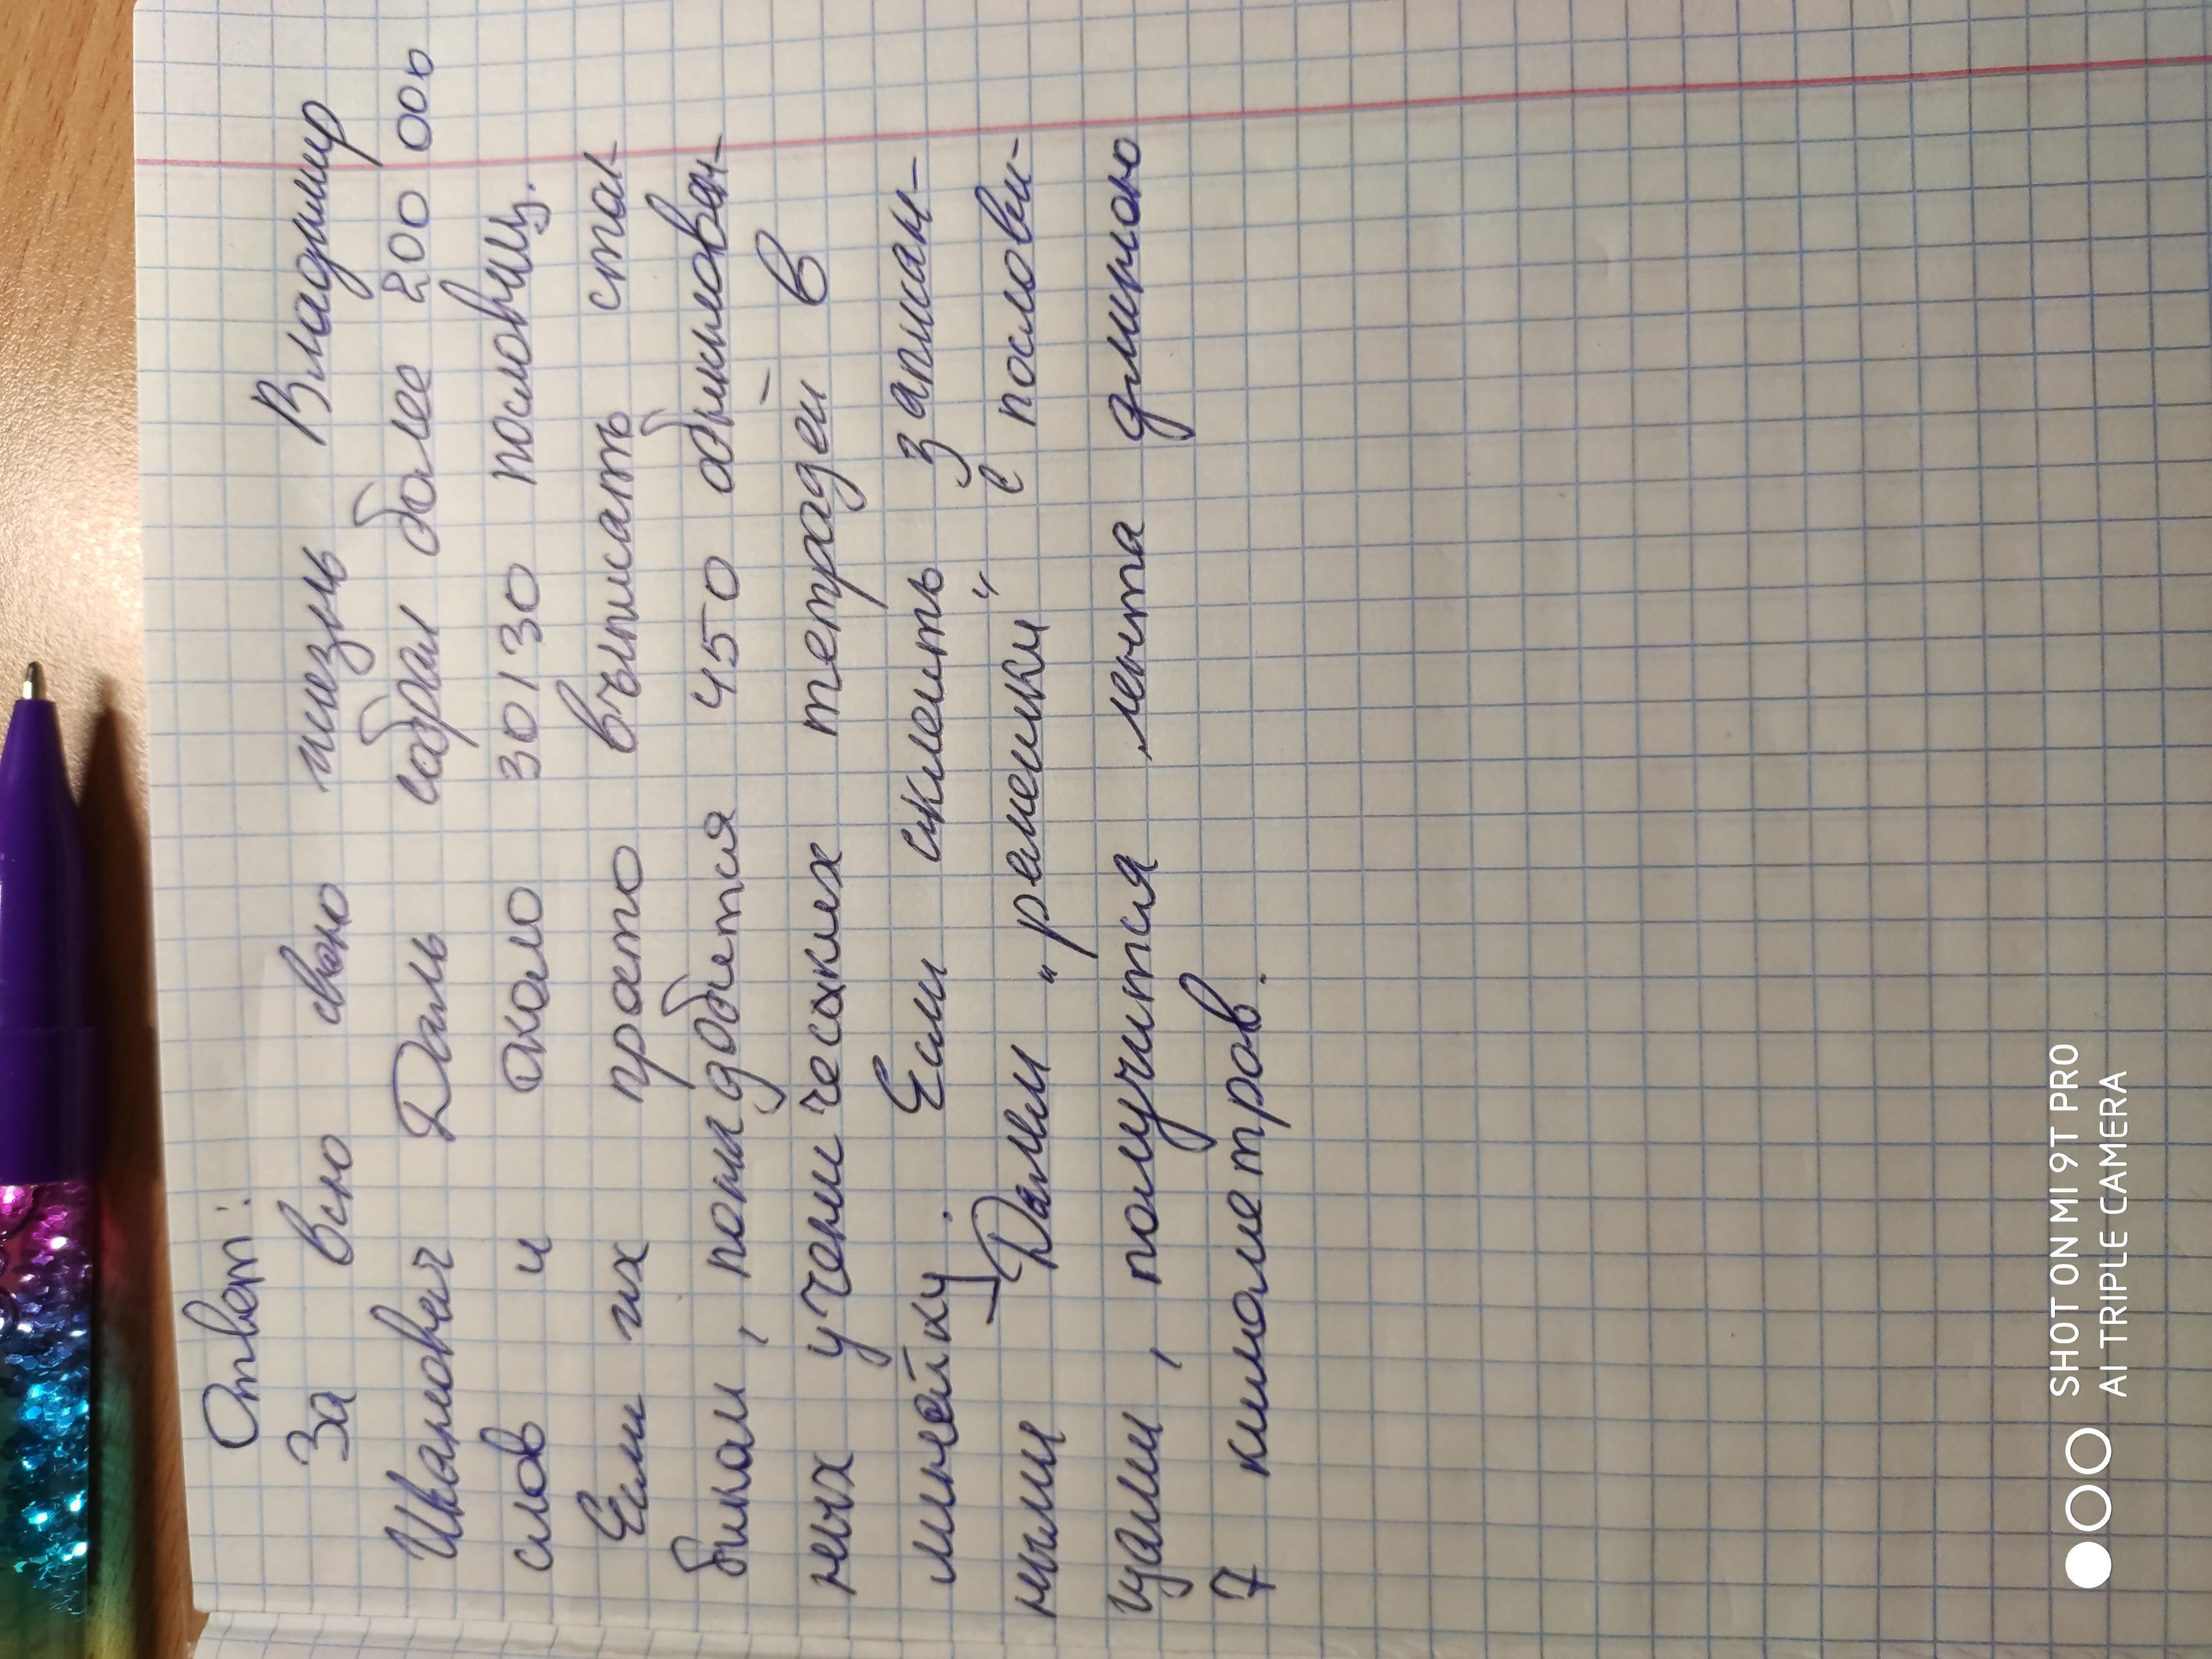 Ответ:
За всю свою жизнь Владимир
Иванович Даль собрал более 200 000
слов и около 30130 пословиц.
Если их просто выписать стол-
биком, понадобится 450 обыкновен-
ных ученических тетрадей в
линейку. Если склеить записан-
ными Далем „ремешки“ с послови-
цами, получится лента длиною
7 километров.
SHOT ON MI 9T PRO
AI TRIPLE CAMERA